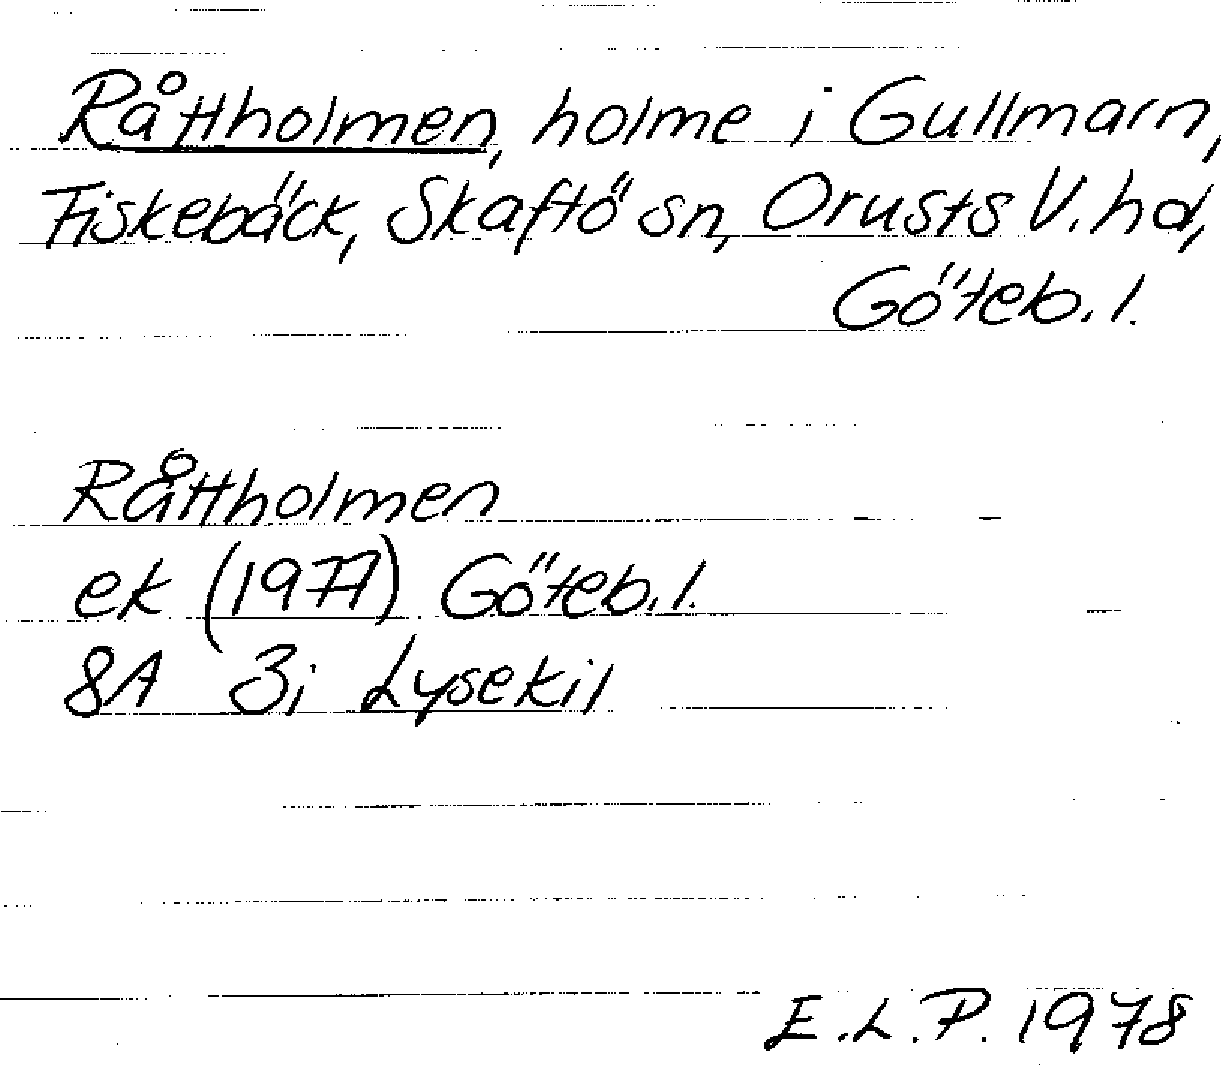 Råttholmen, holme i Gullmarn,
Fiskebäck, Skaftö sn, Orusts V. hd,
Göteb. l.
Råttholmen
ek (1977) Göteb. l.
8A 3i Lysekil
E.L.P. 1978